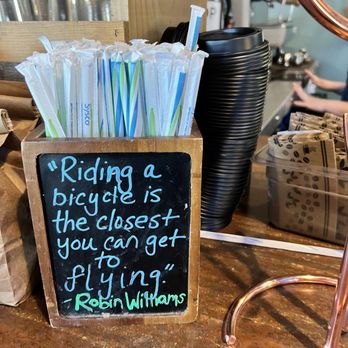 "Riding a
bicycle is
the closest
you can get
to
flying."
- Robin Williams
Sysco